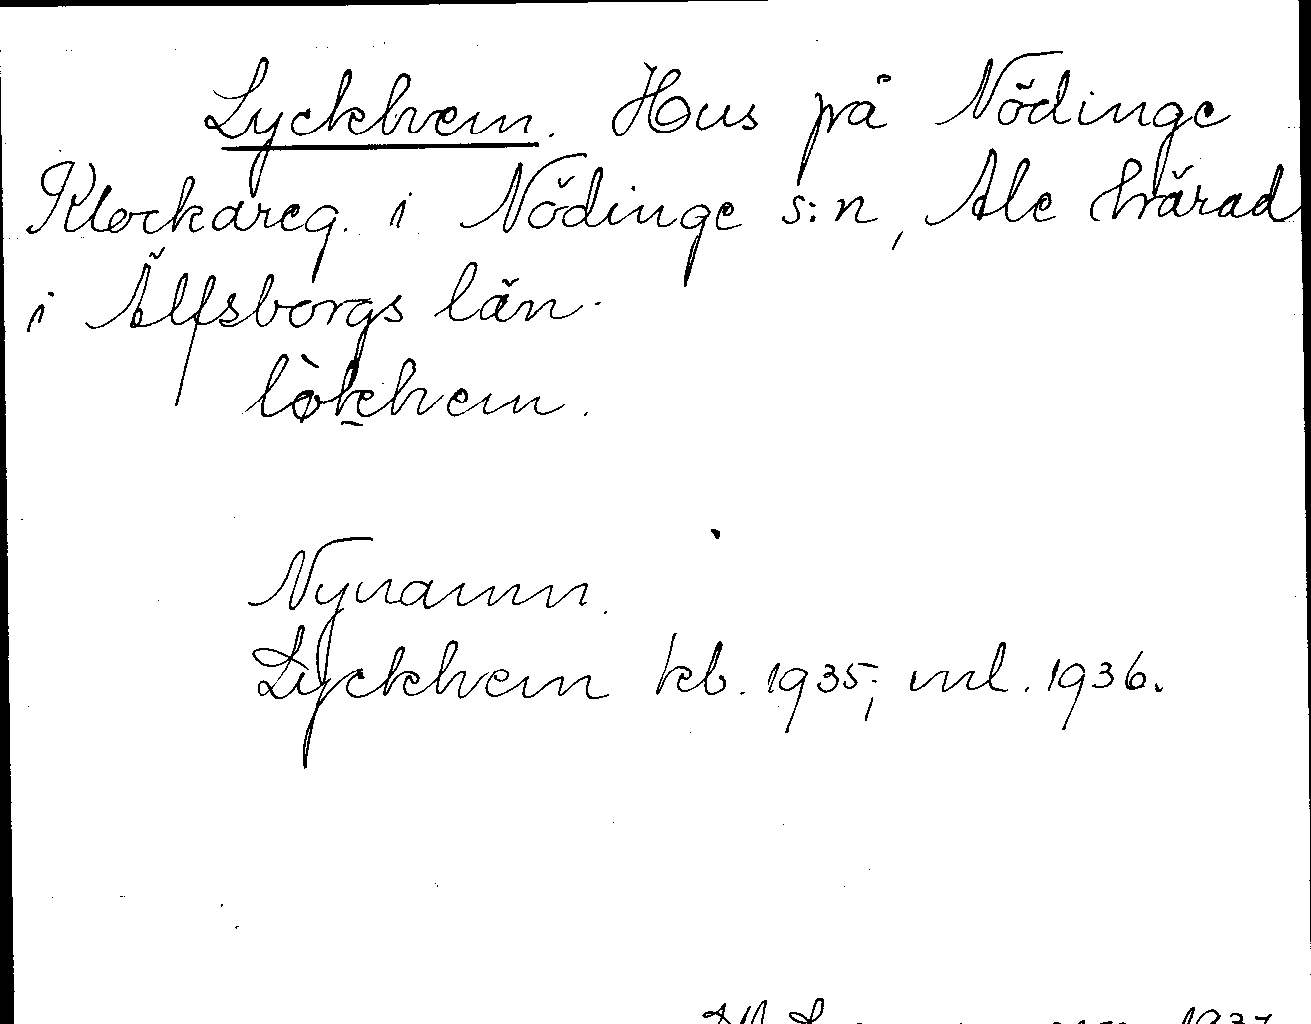 Lyckhem. Hus på Nödinge
Klockareg. i Nödinge s:n, Ale härad
i Älfsborgs län.
lø̀khem.
Nynamn.
Lyckhem kb. 1935; ml. 1936.
1937